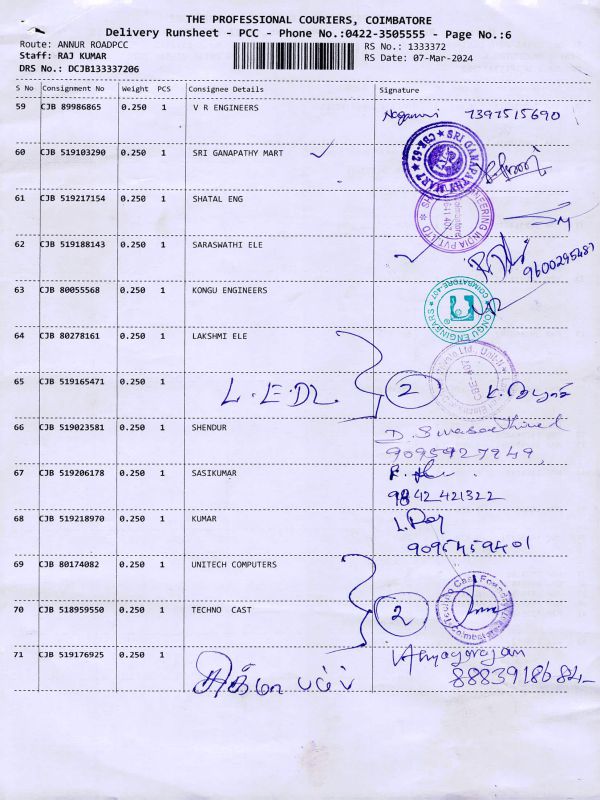 THE PROFESSIONAL COURIERS, COIMBATORE
Delivery Runsheet - PCC - Phone No.:0422-3505555 - Page No.:6
Route: ANNUR ROADPCC RS No.: 1333372
Staff: RAJ KUMAR RS Date: 07-Mar-2024
DRS No.: DCJB133337206
S No Consignment No Weight PCS Consignee Details Signature
59 CJB 89986865 0.250 1 V R ENGINEERS 7397515690
60 CJB 519103290 0.250 1 SRI GANAPATHY MART
SRI GANAPATHY MART CBE-62
61 CJB 519217154 0.250 1 SHATAL ENG
62 CJB 519188143 0.250 1 SARASWATHI ELE
9600295487
63 CJB 80055568 0.250 1 KONGU ENGINEERS
KONGU ENGINEARS COIMBATORE-407
64 CJB 80278161 0.250 1 LAKSHMI ELE
65 CJB 519165471 0.250 1 2
66 CJB 519023581 0.250 1 SHENDUR
9095927249
67 CJB 519206178 0.250 1 SASIKUMAR
9842421322
68 CJB 519218970 0.250 1 KUMAR
9095459401
69 CJB 80174082 0.250 1 UNITECH COMPUTERS
70 CJB 518959550 0.250 1 TECHNO CAST 2
71 CJB 519176925 0.250 1
8883918684